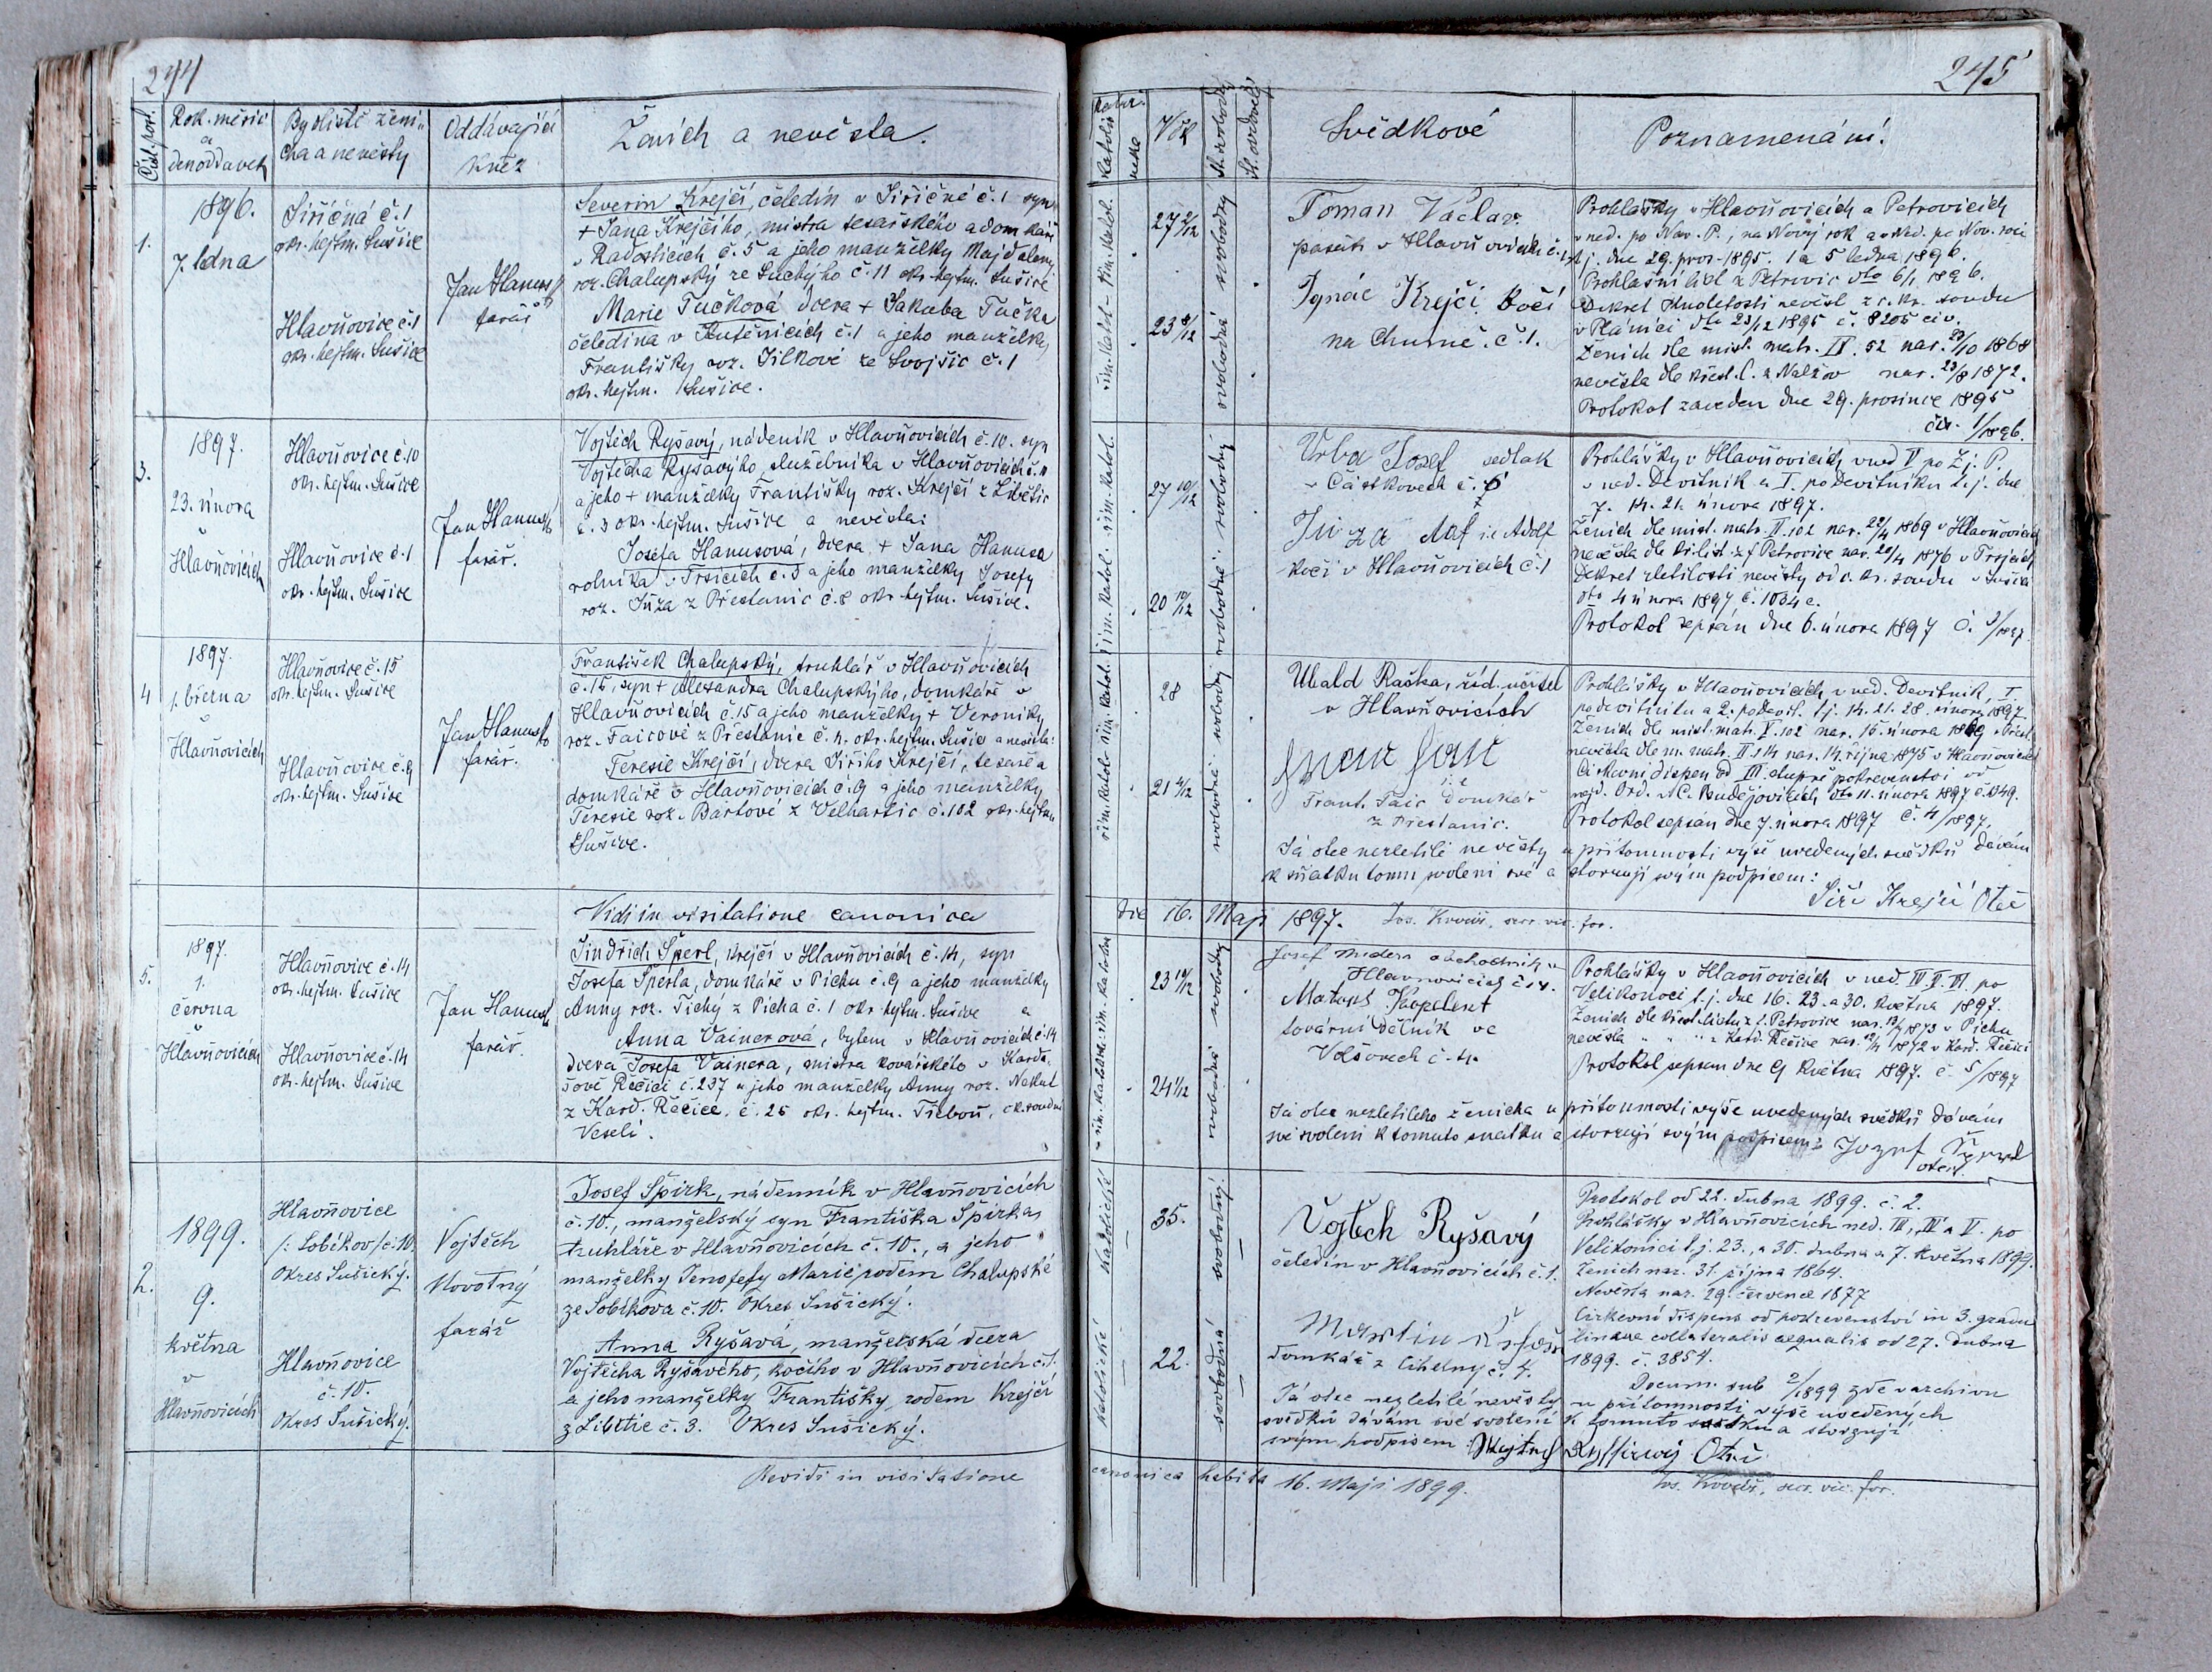 244
Čísl. poř.
Rok. měsíc
a
den oddavek
Bydliště ženi-
cha a nevěsty
Oddávající
kněz
Ženich a nevěsta.
1.
1896.
7. ledna
Jiřičná č. 1
okr. hejtm. Sušice
Hlavňovice č. 1
okr. hejtm. Sušice
Jan Hanusch
farář
Severin Krejčí, čeledín v Jiřičné č. 1 syn
+ Jana Krejčího, mistra tesařského a domkáře
v Radosticích č. 5 a jeho manželky Majdaleny
roz. Chalupský ze Suchýho č. 11 okr. hejtm. Sušice
Marie Tučková dcera + Jakuba Tučka
čeledína v č. 1 a jeho manželky
Františky roz. Jílkové ze Svojšic č. 1
okr. hejtm. Sušice.
3.
1897.
23. února
v
Hlavňovicích
Hlavňovice č. 10
okr. hejtm. Sušice
Hlavňovice č. 1
okr. hejtm. Sušice
Jan Hanusch
farář.
Vojtěch Ryšavý, nádeník v Hlavňovicích č. 10. syn
Vojtěcha Ryšavýho, služebníka v Hlavňovicích č.
a jeho + manželky Františky roz. Krejčí z Libětic
č. 3 okr. hejtm. Sušice a nevěsta:
Josefa Hanusová, dcera + Jana Hanusa
rolníka v Trsicích č. 3 a jeho manželky Josefy
roz. Jůza z Přestanic č. 8 okr. hejtm. Sušice.
4
1897.
1. března
v
Hlavňovicích
Hlavňovice č. 15
okr. hejtm. Sušice
Hlavňovice č. 9
okr. hejtm. Sušice
Jan Hanusch
farář.
František Chalupský, truhlář v Hlavňovicích
č. 15, syn + Alexandra Chalupskýho, domkáře v
Hlavňovicích č. 15 a jeho manželky + Veroniky
roz. Faicové z Přestanic č. 4. okr. hejtm. Sušice a nevěsta:
Teresie Krejčí, dcera Jiřího Krejčí, tesaře a
domkáře v Hlavňovicích č. 9 a jeho manželky
Teresie roz. Bártové z Velhartic č. 102 okr. hejtm
Sušice.
Vidi in visitatione canonica
5.
1897.
1.
června
v
Hlavňovicích
Hlavňovice č. 14
okr. hejtm. Sušice
Hlavňovice č. 14
okr. hejtm. Sušice
Jan Hanusch
farář.
Jindřich Šperl, krejčí v Hlavňovicích č. 14, syn
Josefa Šperla, domkáře v Píchu č. 9 a jeho manželky
Anny roz. Tichý z Pícha č. 1 okr. hejtm. Sušice a
Anna Vainerová, bytem v Hlavňovicích č. 14
dcera Josefa Vainera, mistra kovářského v Karda-
šové Řečici č. 237 a jeho manželky Anny roz. Nekut
z Kard. Řečice, č. 25 okr. hejtm. Třeboň, ok. soudní
Veselí.
2.
1899.
9.
května
v
Hlavňovicích
Hlavňovice
/: Sobíkov/ č. 10.
Okres Sušický.
Hlavňovice
č. 10.
Okres Sušický.
Vojtěch
Novotný
farář
Josef Špirk, nádenník v Hlavňovicích
č. 10., manželský syn Františka Špirka,
truhláře v Hlavňovicích č. 10., a jeho
manželky Jenofefy Marie, rodem Chalupské
ze Sobíkova č. 10. Okres Sušický.
Anna Ryšavá, manželská dcera
Vojtěcha Ryšavého, kočího v Hlavňovicích č. 1.
a jeho manželky Františky, rodem Krejčí
z Libětic č. 3. Okres Sušický.
Revidi in visitatione
245
katolic
Věk
St. svobodný
St. ovdovělý
Svědkové
Poznamenání.
27 2/12
23 4/12
řím. katol. - řím. katol.
svobodná svobodný
Toman Václav.
pasák v Hlavňovicích č. 1
Ignác Krejčí kočí
na Chumě. č. 1.
Prohlášky v Hlavňovicích a Petrovicích
v ned. po Nar. P., na Nový rok a v Ned. po Nov. roce
t. j. dne 29. pros. 1895. 1 a 5 ledna 1896.
Prohlašní list z Petrovic dto 6/1 1896.
Dekret zvoletosti nevěst. z c. kr. soudu
v Plánici dto 23/12 1895 č. 8205 civ.
Ženich dle míst. matr. II. 52 nar. 23/10 1868
nevěsta dle křest. l. z Nalžov nar. 23/8 1872.
Protokol zaveden dne 29. prosince 1895
čís. 1/1896.
27 10/12
20 10/12
řím. katol. řím. katol.
svobodná. svobodný
Urba Josef sedlak
v Částkovech č. 6
Jůza Adf i.e. Adolf
kočí v Hlavňovicích č. 1
Prohlášky v Hlavňovicích v ned V po Zj. P.
v ned. Devítník a I. po Devítníku t. j. dne
7. 14. 21. února 1897.
Ženich dle míst. matr. II. 102 nar. 22/4 1869 v Hlavňovicích
nevěsta dle kř. list. z f. Petrovice nar. 20/4 1876 v Trsicích
Dekret zletilosti nevěsty od c. kr. soudu v Sušici
dto 4 února 1897 č. 1034 c.
Protokol sepsán dne 6. února 1897 č. 3/1897
28
21 4/12
řím. katol. řím. katol.
svobodná. svobodný
Ubald Raška, říd. učitel
v Hlavňovicích
Frant. Faic domkář
z Přestanic.
Prohlášky v Hlavňovicích v ned. Devítník, I.
po devítníku a 2. po devít. tj. 14. 21. 28. února 1897.
Ženich dle míst. matr. I. 102 nar. 15. února 1869
nevěsta dle m. matr. II 114 nar. 14. října 1875 v Hlavňovicích
Církevní dispens od III. stupně pokrevenství od
nejd. Ord. v Č. Budějovicích dto 11. února 1897 č. 1349.
Protokol sepsán dne 7. února 1897 č. 4/1897.
Já otec nezletilé nevěsty u přítomnosti výše uvedených svědků dávám
k sňatku tomu svolení své a stvrzuji svým podpisem:
Jiří Krejčí Otec
die 16. Maji 1897. Jos. Kovář, secr. vic. for.
23 10/12
24 1/12
svobodná svobodný
Josef obchodník v
Hlavňovicích č 14.
Matous
tovární dělník ve
Volšovech č. 4.
Prohlášky v Hlavňovicích v ned. IV. V. VI. po
Velikonoci t. j. dne 16. 23. a 30. května 1897.
Ženich dle křest. listu z f. Petrovice nar. 1873 v Píchu
nevěsta " " " z Kard. Řečice nar. 1872 v Kard. Řečici
Protokol sepsán dne 9 května 1897. č. 5/1897
Já otec nezletilého ženicha u přítomnosti výše uvedených svědků dávám
své svolení k tomuto sňatku a stvrzuji svým podpisem: Jozef
otec.
35.
22.
katolické katolické
svobodná svobodný.
Vojtěch Ryšavý
čeledín v Hlavňovicích č. 1.
Martin
domkář z Cihelny č. 4.
Protokol od 22. dubna 1899. č. 2.
Prohlášky v Hlavňovicích ned. III., IV a V. po
Velikonoci t. j. 23., a 30. dubna a 7. května 1899.
Ženich nar. 31. října 1864.
Nevěsta nar. 29. července 1877
Církevní dispens od pokrevenství in 3. gradu
lineae collateralis aequalis od 27. dubna
1899. č. 3854.
Docum. sub 2/1899 zde v archivu
Já otec nezletilé nevěsty u přítomnosti výše uvedených
svědků dávám své svolení k tomuto sňatku a stvrzuji
svým podpisem: Otec
canonica habita 16. Maji 1899. Jos. Kovář, secr. vic. for.